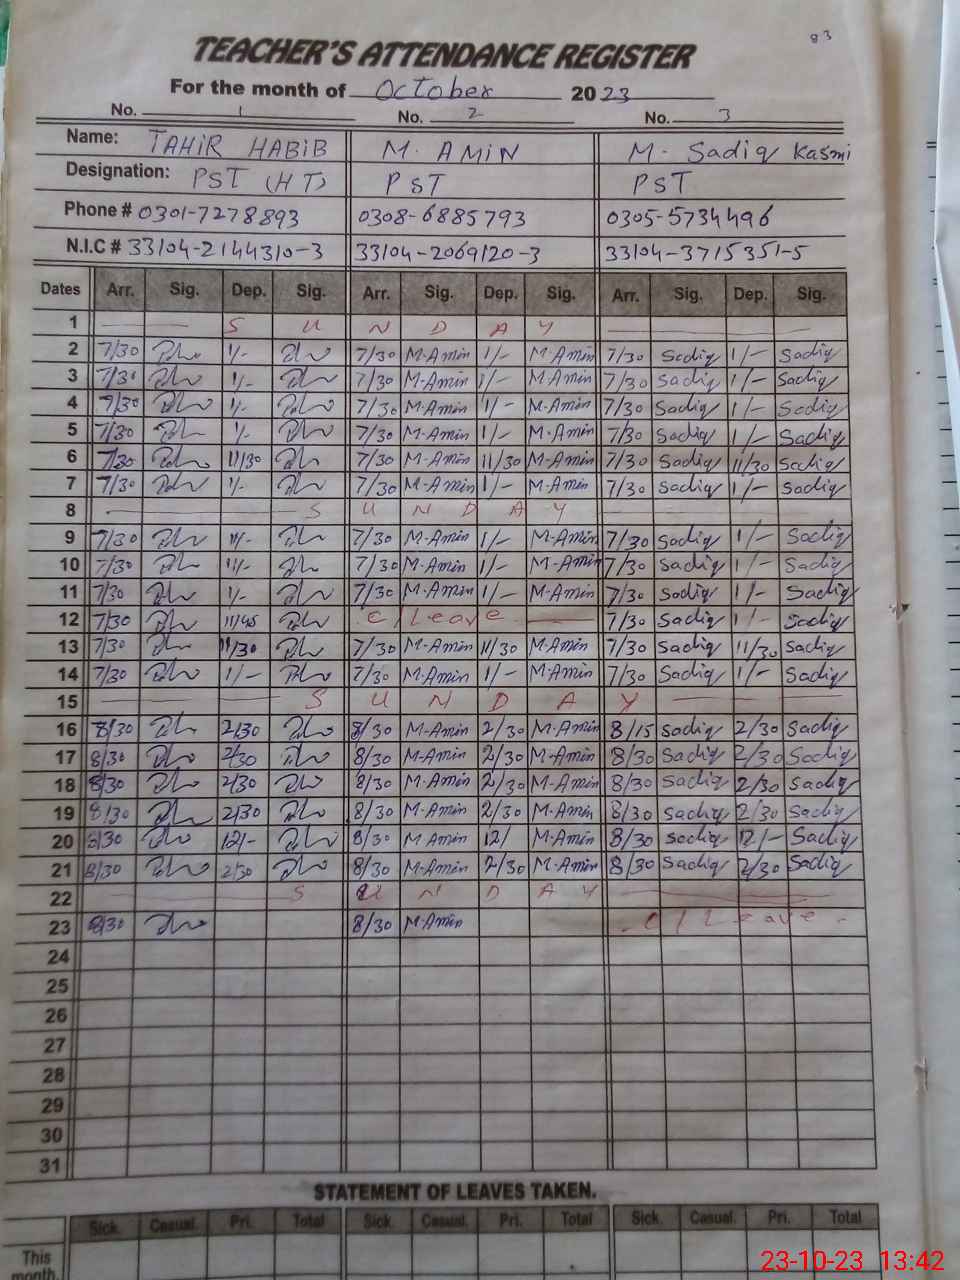 83
TEACHER'S ATTENDANCE REGISTER
For the month of October 2023
No. 1 No. 2 No. 3
Name: TAHIR HABIB M. AMIN M. Sadiq Kasmi
Designation: PST (HT) PST PST
Phone # 0301-7278893 0308-6885793 0305-5734496
N.I.C # 33104-2144310-3 33104-2069120-3 33104-3715351-5
Dates Arr. Sig. Dep. Sig. Arr. Sig. Dep. Sig. Arr. Sig. Dep. Sig.
1 SUNDAY
2 7/30 1/- 7/30 M-Amin 1/- M-Amin 7/30 Sadiq 1/- Sadiq
3 7/30 1/- 7/30 M-Amin 1/- M-Amin 7/30 Sadiq 1/- Sadiq
4 7/30 1/- 7/30 M-Amin 1/- M-Amin 7/30 Sadiq 1/- Sadiq
5 7/30 1/- 7/30 M-Amin 1/- M-Amin 7/30 Sadiq 1/- Sadiq
6 7/30 11/30 7/30 M-Amin 11/30 M-Amin 7/30 Sadiq 11/30 Sadiq
7 7/30 1/- 7/30 M-Amin 1/- M-Amin 7/30 Sadiq 1/- Sadiq
8 SUNDAY
9 7/30 7/30 M-Amin 1/- M-Amin 7/30 Sadiq 1/- Sadiq
10 7/30 7/30 M-Amin 1/- M-Amin 7/30 Sadiq 1/- Sadiq
11 7/30 1/- 7/30 M-Amin 1/- M-Amin 7/30 Sadiq 1/- Sadiq
12 7/30 11/45 C/Leave 7/30 Sadiq 1/- Sadiq
13 7/30 11/30 7/30 M-Amin 11/30 M-Amin 7/30 Sadiq 11/30 Sadiq
14 7/30 1/- 7/30 M-Amin 1/- M-Amin 7/30 Sadiq 1/- Sadiq
15 SUNDAY
16 8/30 2/30 8/30 M-Amin 2/30 M-Amin 8/15 Sadiq 2/30 Sadiq
17 8/30 2/30 8/30 M-Amin 2/30 M-Amin 8/30 Sadiq 2/30 Sadiq
18 8/30 2/30 8/30 M-Amin 2/30 M-Amin 8/30 Sadiq 2/30 Sadiq
19 8/30 2/30 8/30 M-Amin 2/30 M-Amin 8/30 Sadiq 2/30 Sadiq
20 8/30 12/- 8/30 M-Amin 12/ M-Amin 8/30 Sadiq 12/- Sadiq
21 8/30 2/30 8/30 M-Amin 2/30 M-Amin 8/30 Sadiq 2/30 Sadiq
22 SUNDAY
23 8/30 8/30 M-Amin C/Leave
24
25
26
27
28
29
30
31
STATEMENT OF LEAVES TAKEN.
Sick. Casual. Pri. Total Sick. Casual. Pri. Total Sick. Casual. Pri. Total
This
month.
23-10-23 13:42